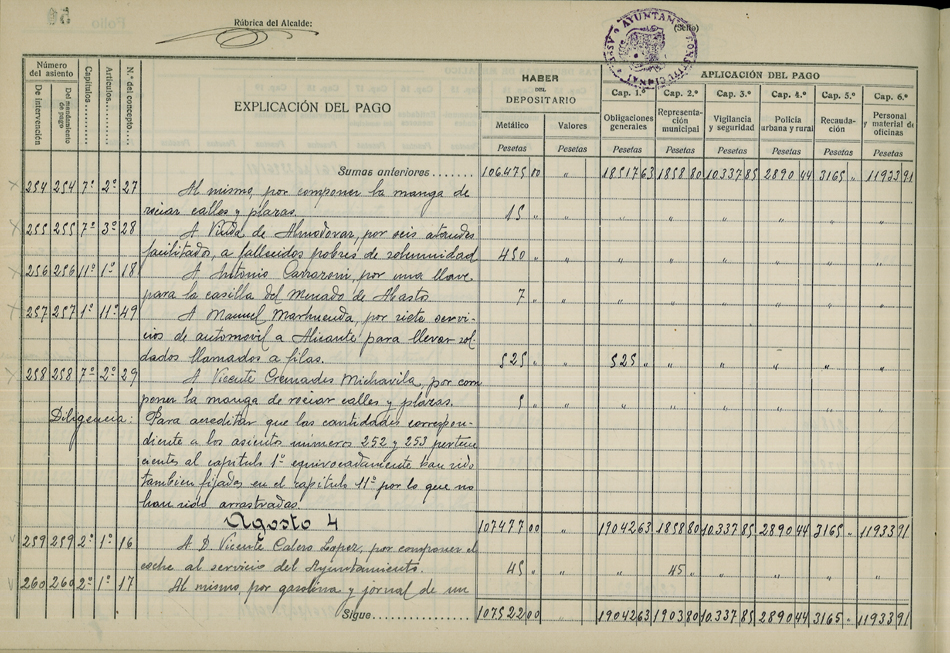 Rúbrica del Alcalde:
(Sello)
AYUNTAM CONSTITUCIONAL ASPE
Número del asiento
De intervención
Del mandamiento de pago
Capítulos
Artículos
N.º del concepto
EXPLICACIÓN DEL PAGO
HABER DEL DEPOSITARIO
Metálico Valores
Pesetas Pesetas
APLICACIÓN DEL PAGO
Cap. 1.º Cap. 2.º Cap. 3.º Cap. 4.º Cap. 5.º Cap. 6.º
Obligaciones generales
Representación municipal
Vigilancia y seguridad
Policía urbana y rural
Recaudación
Personal y material de oficinas
Pesetas Pesetas Pesetas Pesetas Pesetas Pesetas
Sumas anteriores....... 106.475 00 " 18517 63 1858 80 10.337 85 2890 44 3165 " 11933 91
254 254 7º 2º 27 Al mismo, por componer la manga de
rociar calles y plazas. 15 " " " " " " " "
255 255 7º 3º 28 A Viuda de Almodovar, por seis ataudes
facilitados a fallecidos pobres de solemnidad 450 " " " " " " " "
256 256 11º 1º 18 A Antonio por una llave
para la casilla del Mercado de Abasto. 7 " " " " " " " "
257 257 1º 11º 49 A Manuel Marhuenda, por siete servi-
cios de automovil a Alicante para llevar sol-
dados llamados a filas. 525 " " 525 " " " " " "
258 258 7º 2º 29 A Vicente Cremades Michavila, por com
poner la manga de rociar calles y plazas. 5 " " " " " " " "
Diligencia: Para acreditar que las cantidades correspon-
diente a los asientos números 252 y 253 pertene
cientes al capitulo 1º equivocadamente han sido
tambien fijadas en el capitulo 11º por lo que no
han sido arrastradas.
Agosto 4 107477 00 " 19042 63 1858 80 10.337 85 2890 44 3165 " 11933 91
259 259 2º 1º 16 A D. Vicente Calero Lopez, por componer el
coche al servicio del Ayuntamiento. 45 " " " 45 " " " " "
260 260 2º 1º 17 Al mismo, por gasolina y jornal de un
Sigue................ 107522 00 19042 63 1903 80 10.337 85 2890 44 3165 " 11933 91